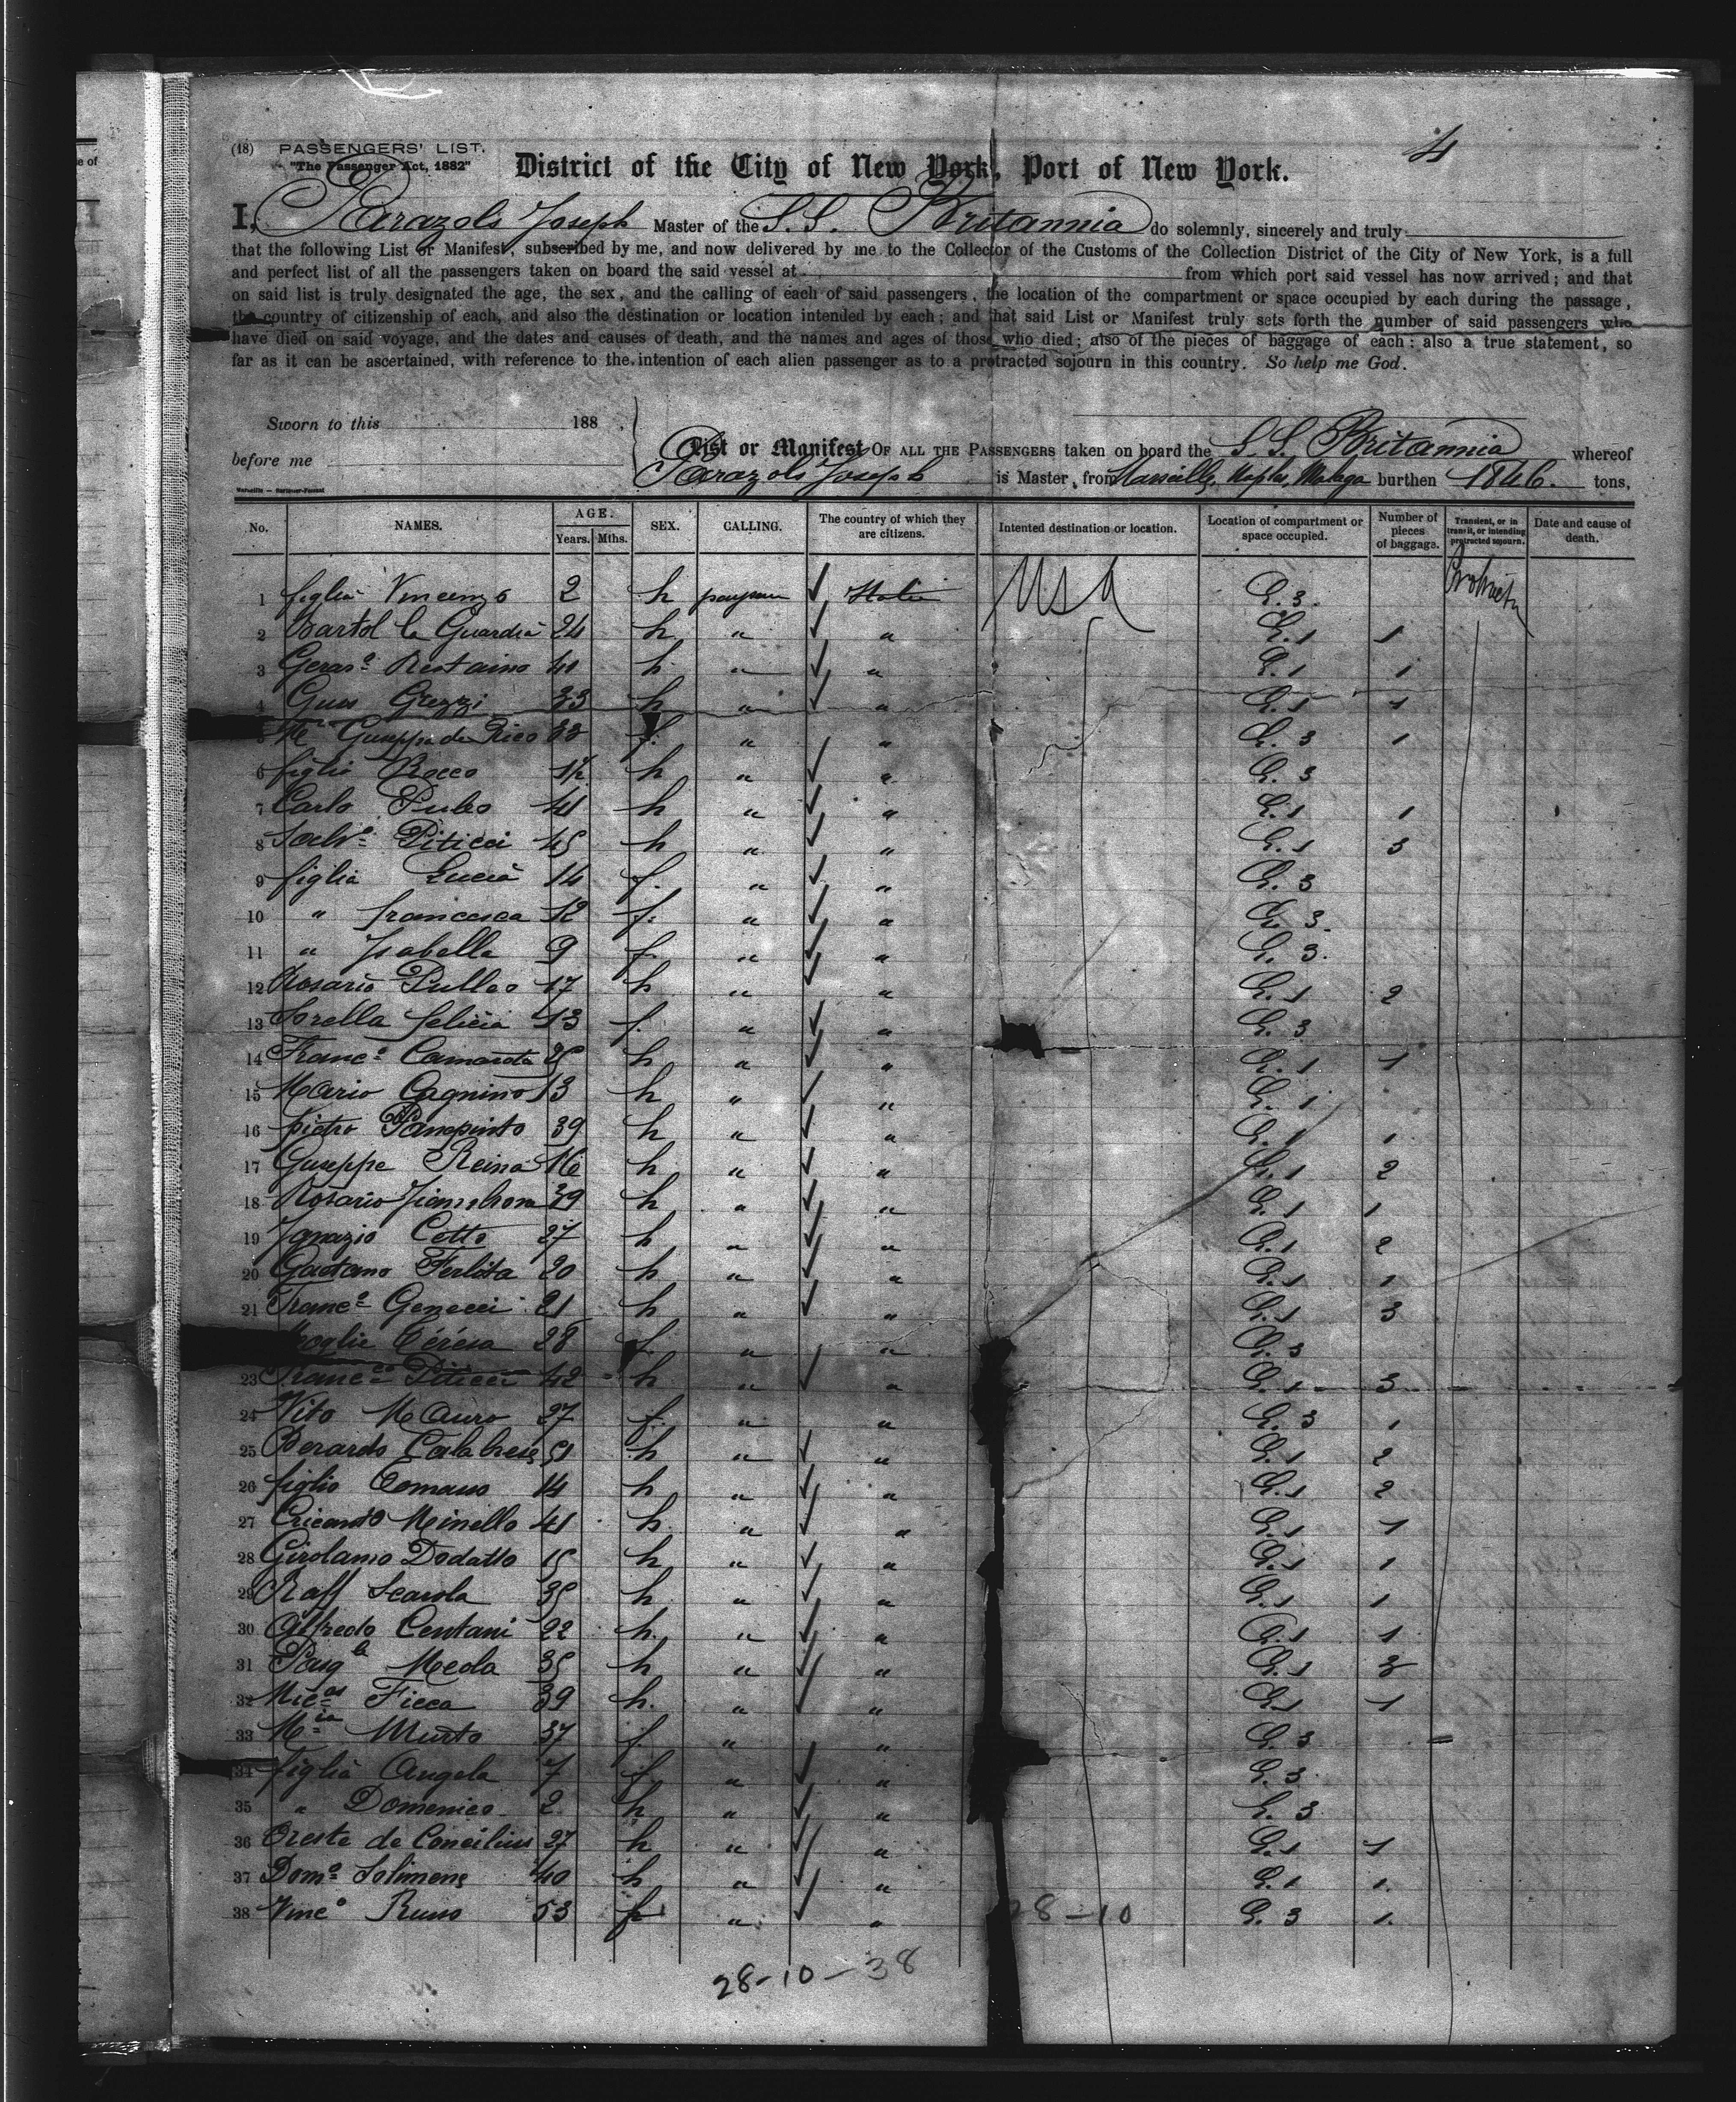 (18) PASSENGERS' LIST. 4
"The Passenger Act, 1882" District of the City of New York, Port of New York.
I, Parazols Joseph Master of the S.S. Britannia do solemnly, sincerely and truly
that the following List or Manifest, subscribed by me, and now delivered by me to the Collector of the Customs of the Collection District of the City of New York, is a full
and perfect list of all the passengers taken on board the said vessel at from which port said vessel has now arrived; and that
on said list is truly designated the age, the sex, and the calling of each of said passengers, the location of the compartment or space occupied by each during the passage,
the country of citizenship of each, and also the destination or location intended by each; and that said List or Manifest truly sets forth the number of said passengers who
have died on said voyage, and the dates and causes of death, and the names and ages of those who died; also of the pieces of baggage of each: also a true statement, so
far as it can be ascertained, with reference to the intention of each alien passenger as to a protracted sojourn in this country. So help me God.
Sworn to this 188 ,
before me
List or Manifest OF ALL THE PASSENGERS taken on board the S.S. Britannia whereof
Parazols Joseph is Master, from Marseille, Naples, Malaga burthen 1846. tons,
No. NAMES. AGE. Years. Mths. SEX. CALLING. The country of which they are citizens. Intented destination or location. Location of compartment or space occupied. Number of pieces of baggage. Transient, or in transit, or intending protracted sojourn. Date and cause of death.
1 figlio Vincenzo 2 h paysan Italie USA E. 3.
2 Bartol la Guardia 24 h " " E. 1 1
3 Geras° Restaino 41 h " " E. 1 1
4 Gius Grezzi 33 h " " E. 1 1
5 Giuseppa de Rico 33 f. " " E. 3 1
6 figlio Rocco h " " E. 3
7 Carlo Puleo 41 h " " E. 1 1
8 Salv° Piticci 45 h " " E. 1 3
9 figlia Lucia 14 f. " " E. 3
10 " francesca 12 f. " " E. 3.
11 " Isabella 9 f. " " E. 3.
12 Rosario Pulleo 17 h " " E. 1 2
13 Sorella felicia 13 f. " " E. 3
14 Franc° Camarota 25 h " " E. 1 1
15 Mario Cagnino 13 h " " E. 1
16 pietro Panepinto 39 h " " E. 1 1
17 Giuseppe Reina 16 h " " E. 1 2
18 Rosario 39 h " " E. 1 1
19 Ignazio Cotto 27 h " " E. 1 2
20 Gaetano Ferlita 20 h " " E. 1 1
21 Franc° Genecci 21 h " " E. 1 3
moglie Térésa 28 f. " " E. 3
23 Franc° Piticci 42 h " " E. 1 3
24 Vito Mauro 27 f. " " E. 3 1
25 Berardo Calabrese 51 h " " E. 1 2
26 figlio Tomaso 14 h " " E. 1 2
27 Minello 41 h " " E. 1 1
28 Girolamo Dodatto 15 h " " E. 1 1
29 Raff Scarola 35 h " " E. 1 1
30 Alfredo Centani 22 h. " " E. 1 1
31 Pasq le Meola 35 h " " E. 1
32 Ficca 39 h. " " E. 1 1
33 M ia Murto 37 f. " " E. 3
34 figlia Angela 7 f. " " E. 3
35 " Domenico 2 h " " E. 3
36 Oreste de Conciliis 27 h " " E. 1 1
37 Dom° Solimene 40 h " " E. 1 1.
38 Vinc° Russo 53 f " " 28-10 E. 3 1.
28-10-38